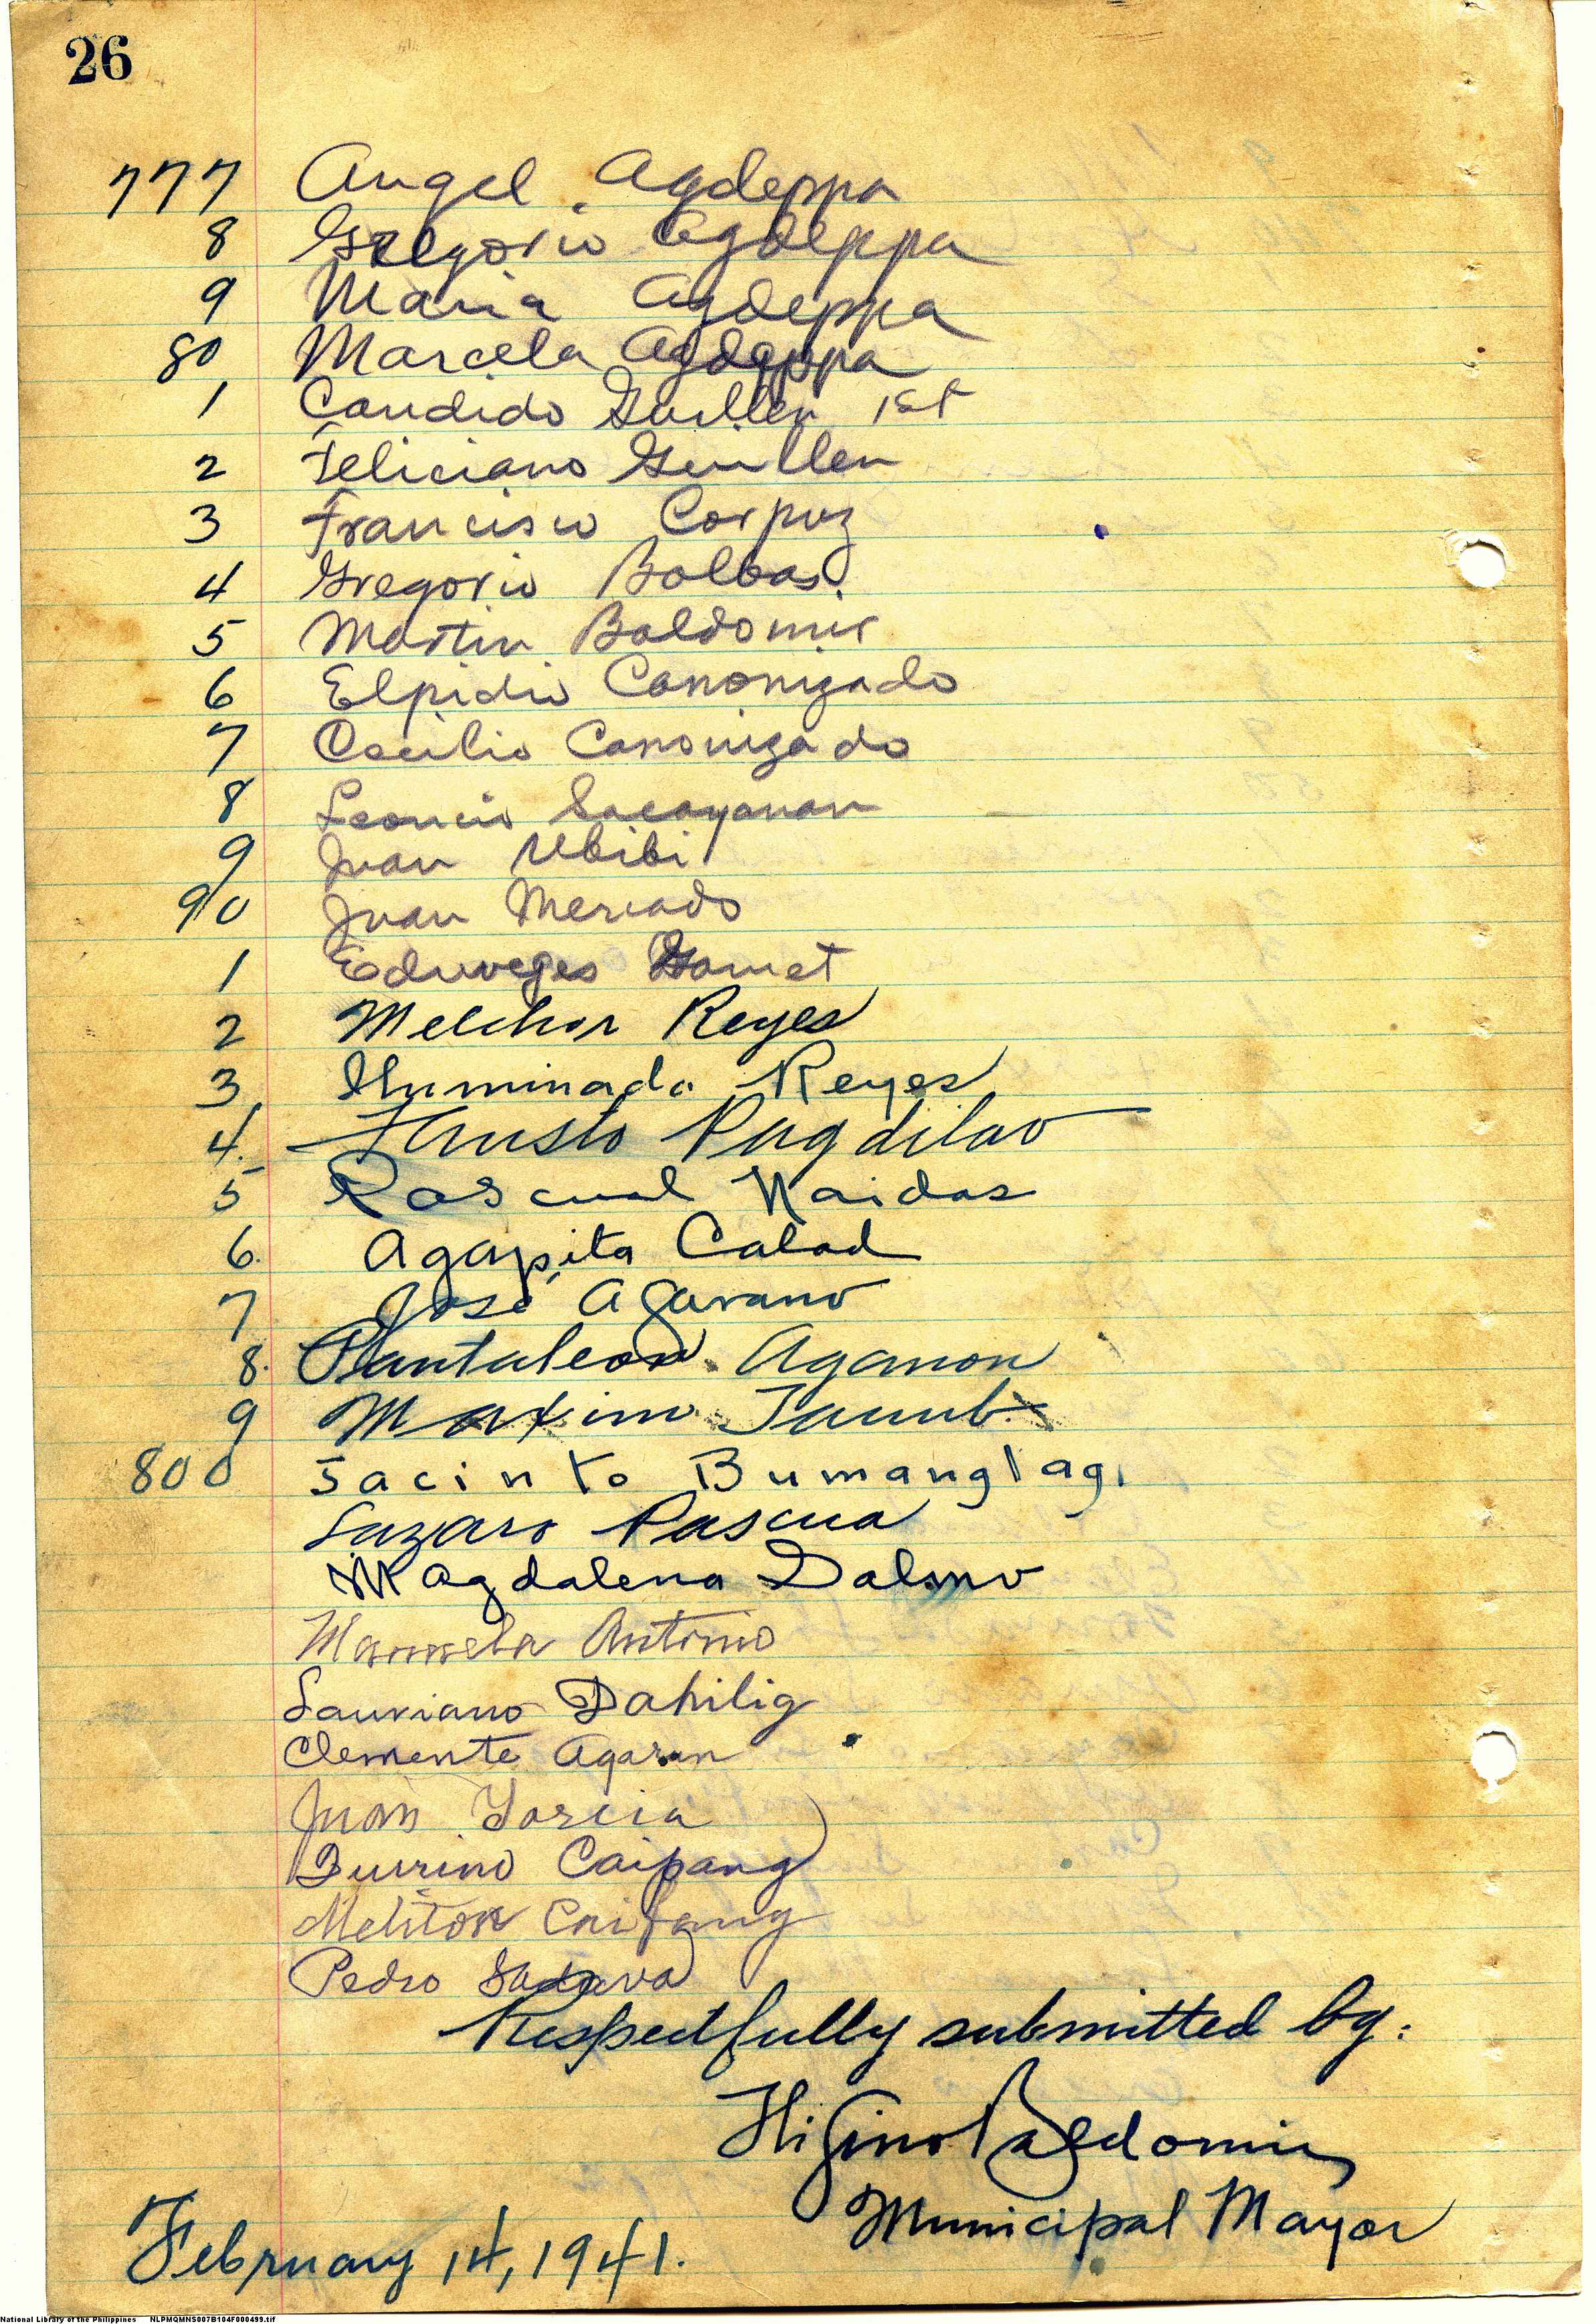 26
777 Angel Agdeppa
8 Gregorio Agdeppa
9 Maria Agdeppa
80 Marcela Agdeppa
1 Candido Guillen 1st
2 Feliciano Guillen
3 Francisco Corpuz
4 Gregorio Balbas.
5 Martin Baldomir
6 Elpidio Canonizado
7 Cecilio Canonizado
8 Leoncio Sacayanan
9 Juan Ubibi
90 Juan Mercado
1 Eduveges Gamet
2 Melchor Reyes
3 Iluminada Reyes
4. Fausto Pagdilao
5 Pascual Naidas
6. Agapita Calad
7 José Agarano
8. Pantaleon Aganon
9 Maximo
800 Jacinto Bumanglag.
Lazaro Pascua
Magdalena
Manuela Antonio
Lauriano Dahilig
Clemente Agaran
Juan Garcia
Caipang
Meliton Caipang
Pedro
Respectfully submitted by:
Higino Baldomir
Municipal Mayor
February 14, 1941.
National Library of the Philippines NLPMQMNS007B104F000499.tif